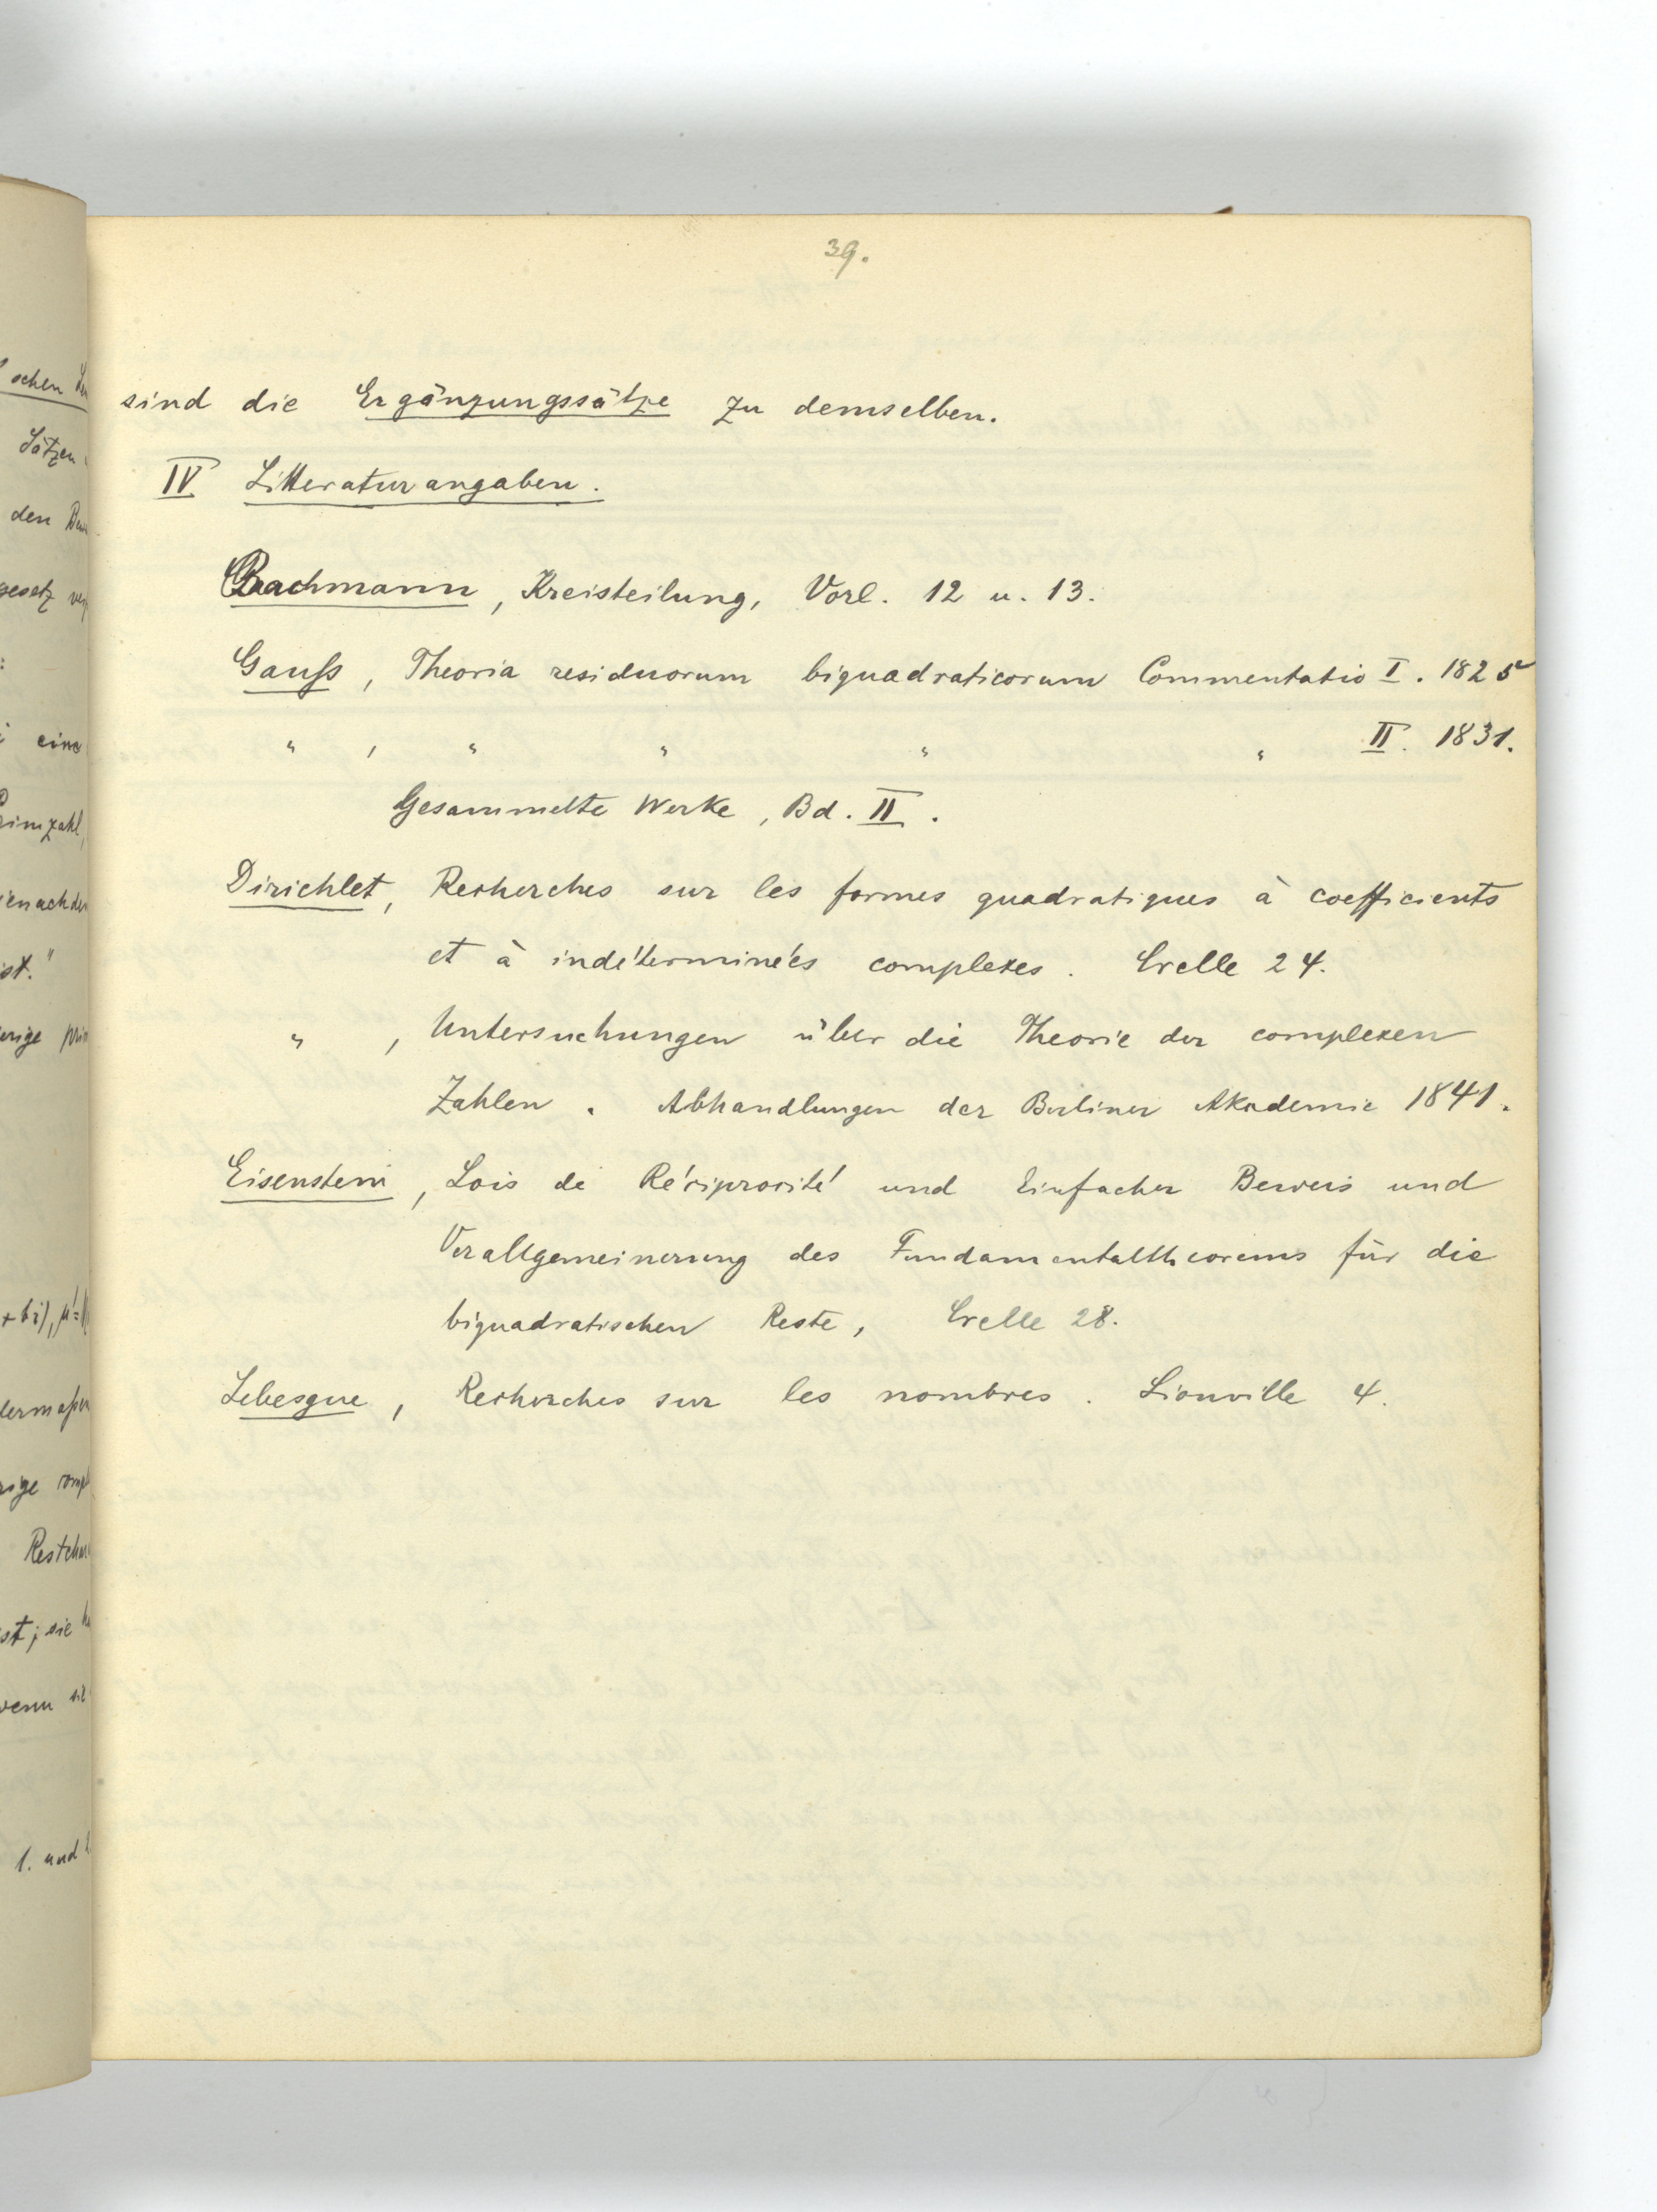 39.
sind die Ergänzungssätze zu demselben.
IV Litteraturangaben.
Bachmann, Kreisteilung, Vorl. 12 u. 13.
Gauß, Theoria residuorum biquadraticorum Commentatio I. 1825
" , " " " " II. 1831.
Gesammelte Werke, Bd. II.
Dirichlet, Recherches sur les formes quadratiques à coefficients
et à indéterminées complexes. Crelle 24.
" , Untersuchungen über die Theorie der complexen
Zahlen. Abhandlungen der Berliner Akademie 1841.
Eisenstein, Lois de Réciprocité und Einfacher Beweis und
Verallgemeinerung des Fundamentaltheorems für die
biquadratischen Reste, Crelle 28.
Lebesgue, Recherches sur les nombres. Liouville 4.
schen
Sätzen
den
gesetz
eine
ist."
Restcha
ist; sie
wenn
1. und